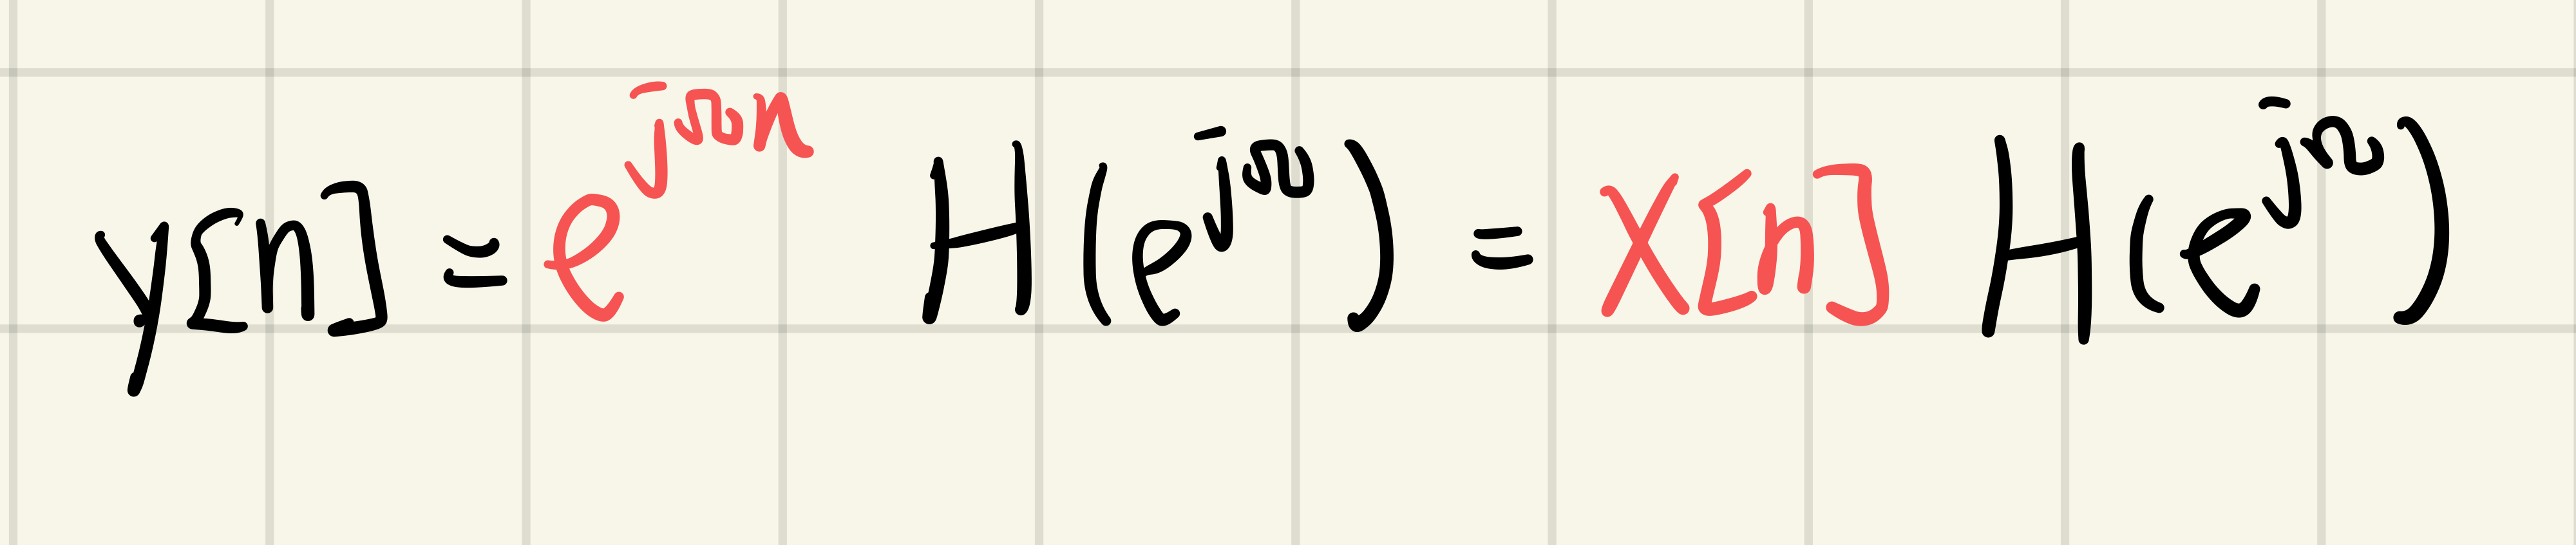 y[n] = e^{jΩn} H(e^{jΩ}) = X[n] H(e^{jΩ})